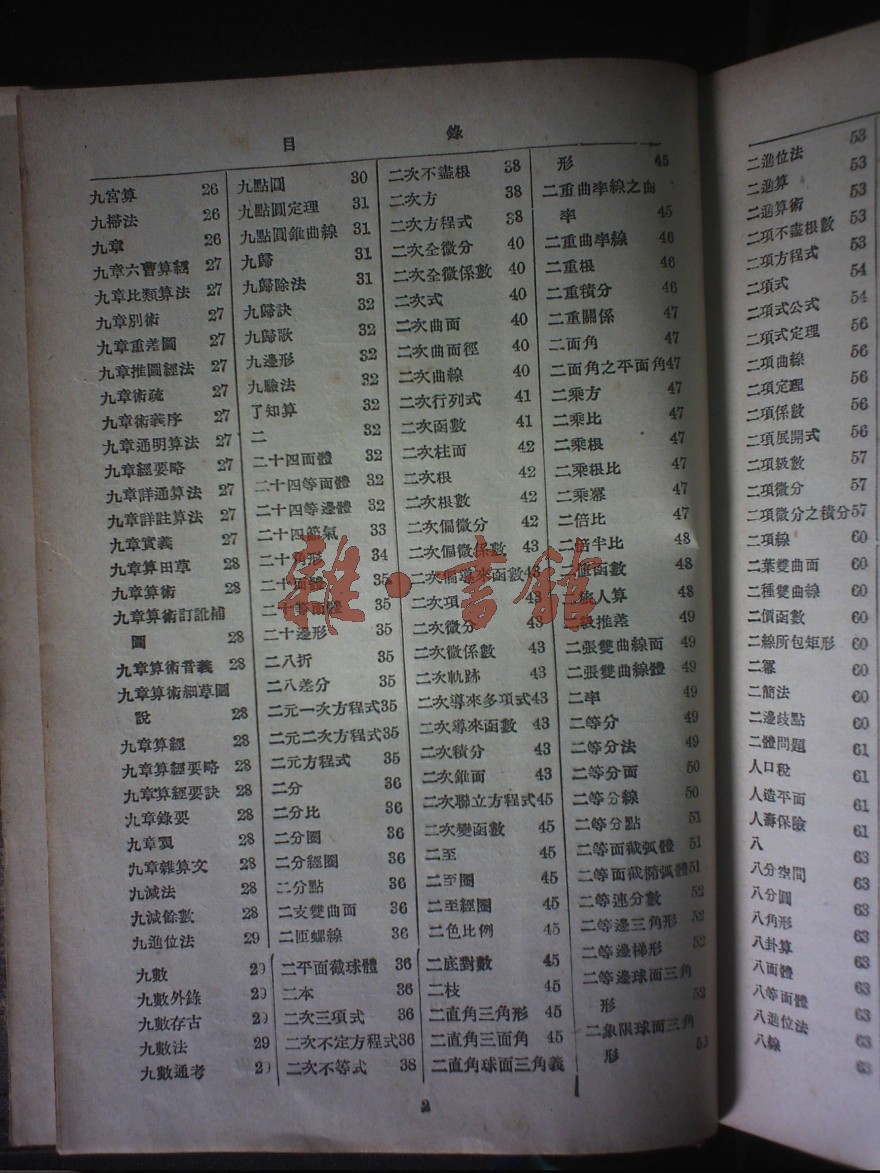 目錄
九宮算 26
九掃法 26
九章 26
九章六曹算經 27
九章比類算法 27
九章別術 27
九章重差圖 27
九章推圖經法 27
九章術疏 27
九章術義序 27
九章通明算法 27
九章經要略 27
九章詳通算法 27
九章詳註算法 27
九章實義 27
九章算田草 28
九章算術 28
九章算術訂訛補
圖 28
九章算術音義 28
九章算術細草圖
說 28
九章算經 28
九章算經要略 28
九章算經要訣 28
九章錄要 28
九章翼 28
九章雜算文 28
九減法 28
九減餘數 28
九進位法 29
九數 29
九數外錄 29
九數存古 29
九數法 29
九數通考 29
九點圓 30
九點圓定理 31
九點圓錐曲線 31
九歸 31
九歸除法 31
九歸訣 32
九歸歌 32
九邊形 32
九驗法 32
了知算 32
二 32
二十四面體 32
二十四等面體 32
二十四等邊體 32
二十四節氣 33
二十角形 34
二十面體 35
二十等面體 35
二十邊形 35
二八折 35
二八差分 35
二元一次方程式35
二元二次方程式35
二元方程式 35
二分 36
二分比 36
二分圈 36
二分經圈 36
二分點 36
二支雙曲面 36
二匝螺線 36
二平面截球體 36
二本 36
二次三項式 36
二次不定方程式36
二次不等式 38
二次不盡根 38
二次方 38
二次方程式 38
二次全微分 40
二次全微係數 40
二次式 40
二次曲面 40
二次曲面徑 40
二次曲線 40
二次行列式 41
二次函數 41
二次柱面 42
二次根 42
二次根數 42
二次偏微分 42
二次偏微係數 43
二次偏導來函數43
二次項
二次微分 43
二次微係數 43
二次軌跡 43
二次導來多項式43
二次導來函數 43
二次積分 43
二次錐面 43
二次聯立方程式45
二次變函數 45
二至 45
二至圈 45
二至經圈 45
二色比例 45
二底對數 45
二枝 45
二直角三角形 45
二直角三面角 45
二直角球面三角義
形 45
二重曲率線之曲
率 45
二重曲率線 46
二重根 46
二重積分 46
二重關係 47
二面角 47
二面角之平面角47
二乘方 47
二乘比 47
二乘根 47
二乘根比 47
二乘冪 47
二倍比 47
二倍半比 48
二值函數 48
二旅人算 48
二級推差 49
二張雙曲線面 49
二張雙曲線體 49
二率 49
二等分 49
二等分法 49
二等分面 50
二等分線 50
二等分點 51
二等面截弧體 51
二等面截橢弧體51
二等連分數 52
二等邊三角形 52
二等邊梯形 52
二等邊球面三角
形 52
二象限球面三角
形 53
2
二進位法 53
二進算 53
二進算術 53
二項不盡根數 53
二項方程式 53
二項式 54
二項式公式 54
二項式定理 56
二項曲線 56
二項定理 56
二項係數 56
二項展開式 56
二項級數 57
二項微分 57
二項微分之積分57
二項線 60
二葉雙曲面 60
二種雙曲線 60
二價函數 60
二線所包矩形 60
二冪 60
二簡法 60
二邊歧點 60
二體問題 61
人口稅 61
人造平面 61
人壽保險 61
八 63
八分空間 63
八分圓 63
八角形 63
八卦算 63
八面體 63
八等面體 63
八進位法 63
八線 63
雜·書館